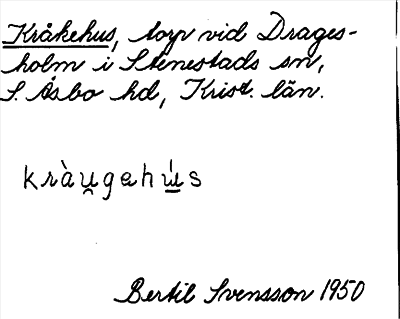 Kråkehus, torp vid Drages-
holm i Stenestads sn,
S. Åsbo hd, Krist. län.
kràu̯gehú̱s
Bertil Svensson 1950